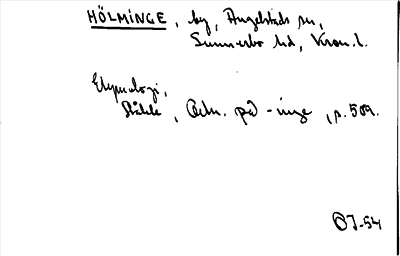 HÖLMINGE, by, Angelstads sn,
Sunnerbo hd, Kron. l.
Etymologi,
Ståhle, Ortn. på -inge, p. 509.
ÖJ-54